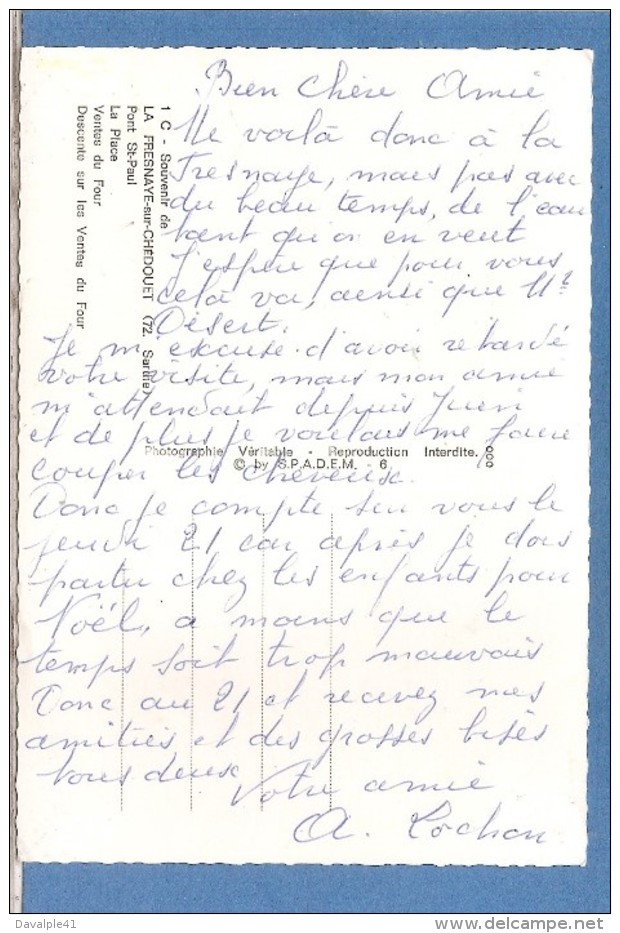 Bien Chère Amie
Me voilà donc à la
Fresnaye, mais pas avec
du beau temps, de l'eau
tant qu'on en veut
J'espère que pour vous
cela va, ainsi que Mr
Désert.
Je m'excuse d'avoir retardé
votre visite, mais mon amie
m'attendait depuis Juin
et de plus je voulais me faire
couper les cheveux.
Donc je compte sur vous le
jeudi 21 car après je dois
partir chez les enfants pour
Noël, a moins que le
temps soit trop mauvais
Donc au 21 et recevez mes
amitiés et des grosses bises
tous deux
Votre amie
A. Rochon
1 C - Souvenir de
LA FRESNAYE-sur-CHÉDOUET (72. Sarthe)
Pont St-Paul
La Place
Ventes du Four
Descente sur les Ventes du Four
Photographie Véritable - Reproduction Interdite.
© by S.P.A.D.E.M. 6
Davalple41
www.delcampe.net